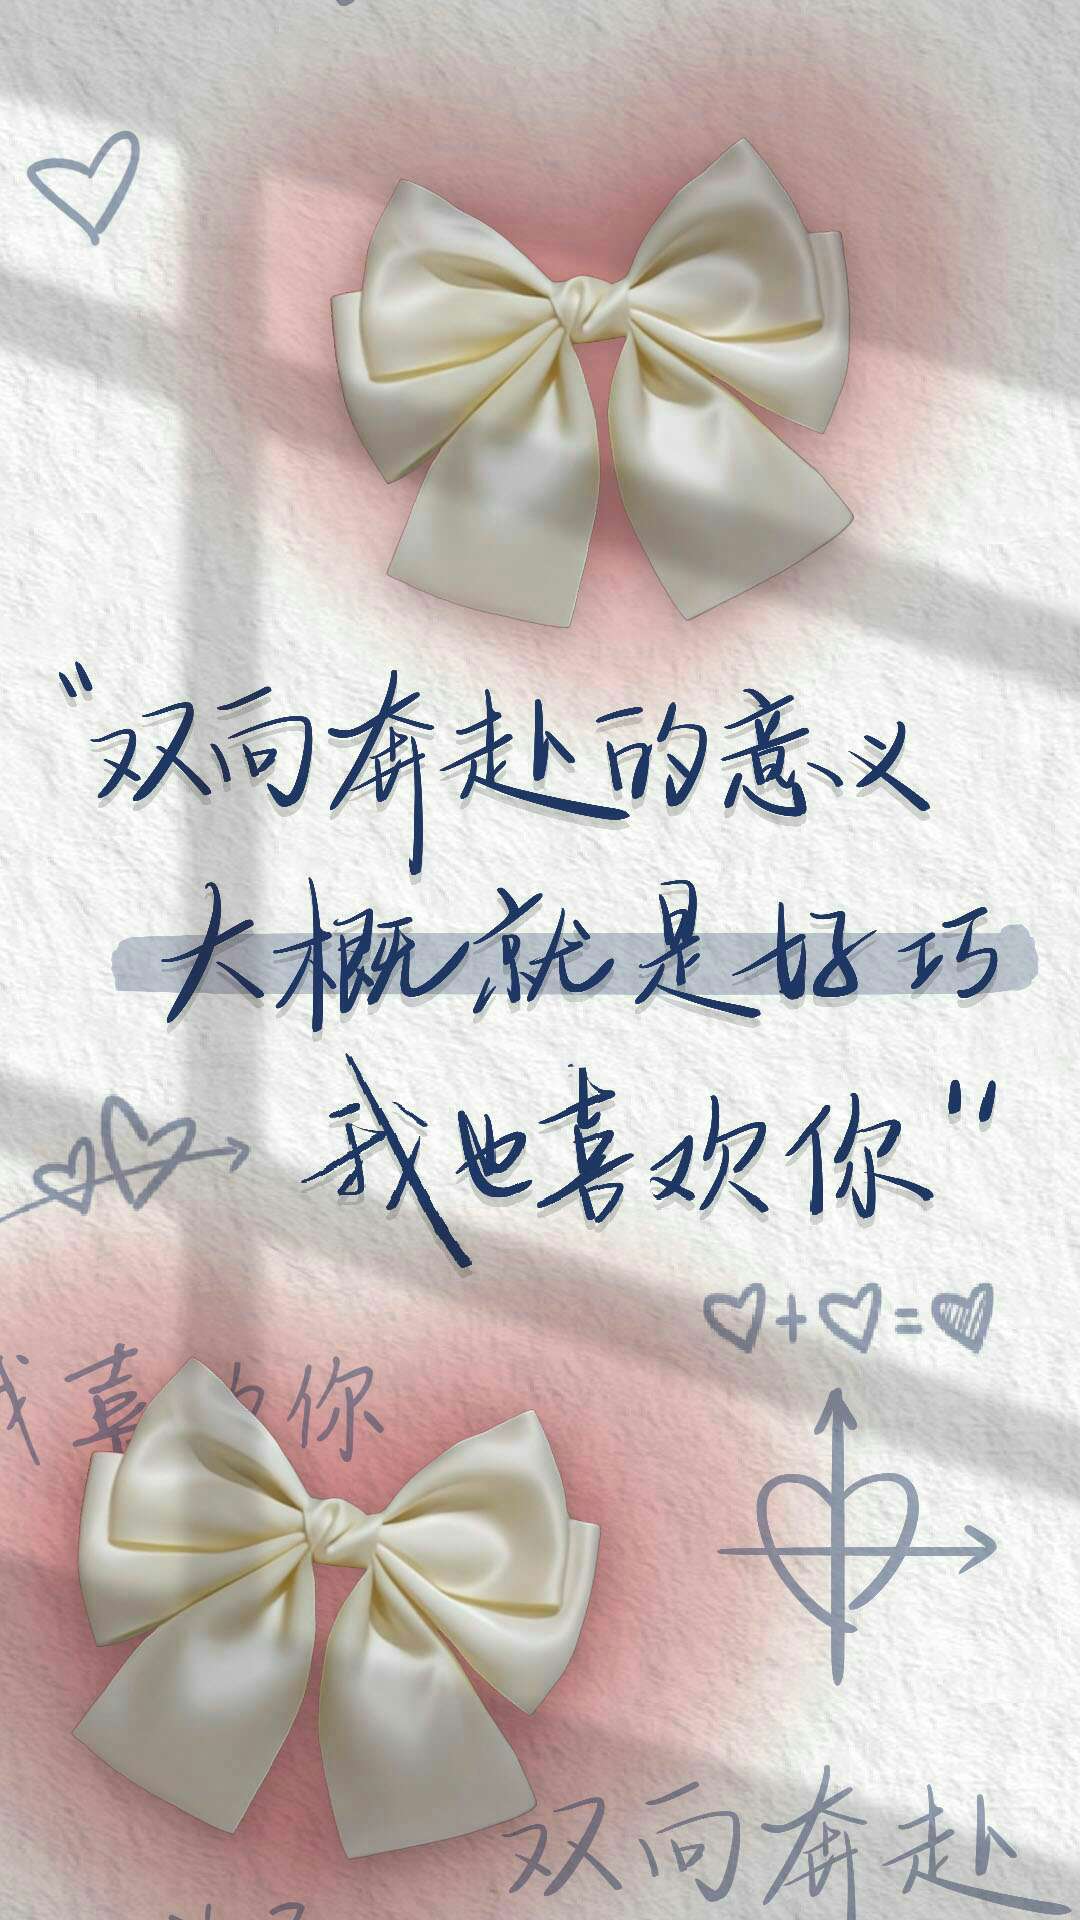 "双向奔赴的意义
大概就是好巧
我也喜欢你"
♡+♡=♡
我喜欢你
双向奔赴